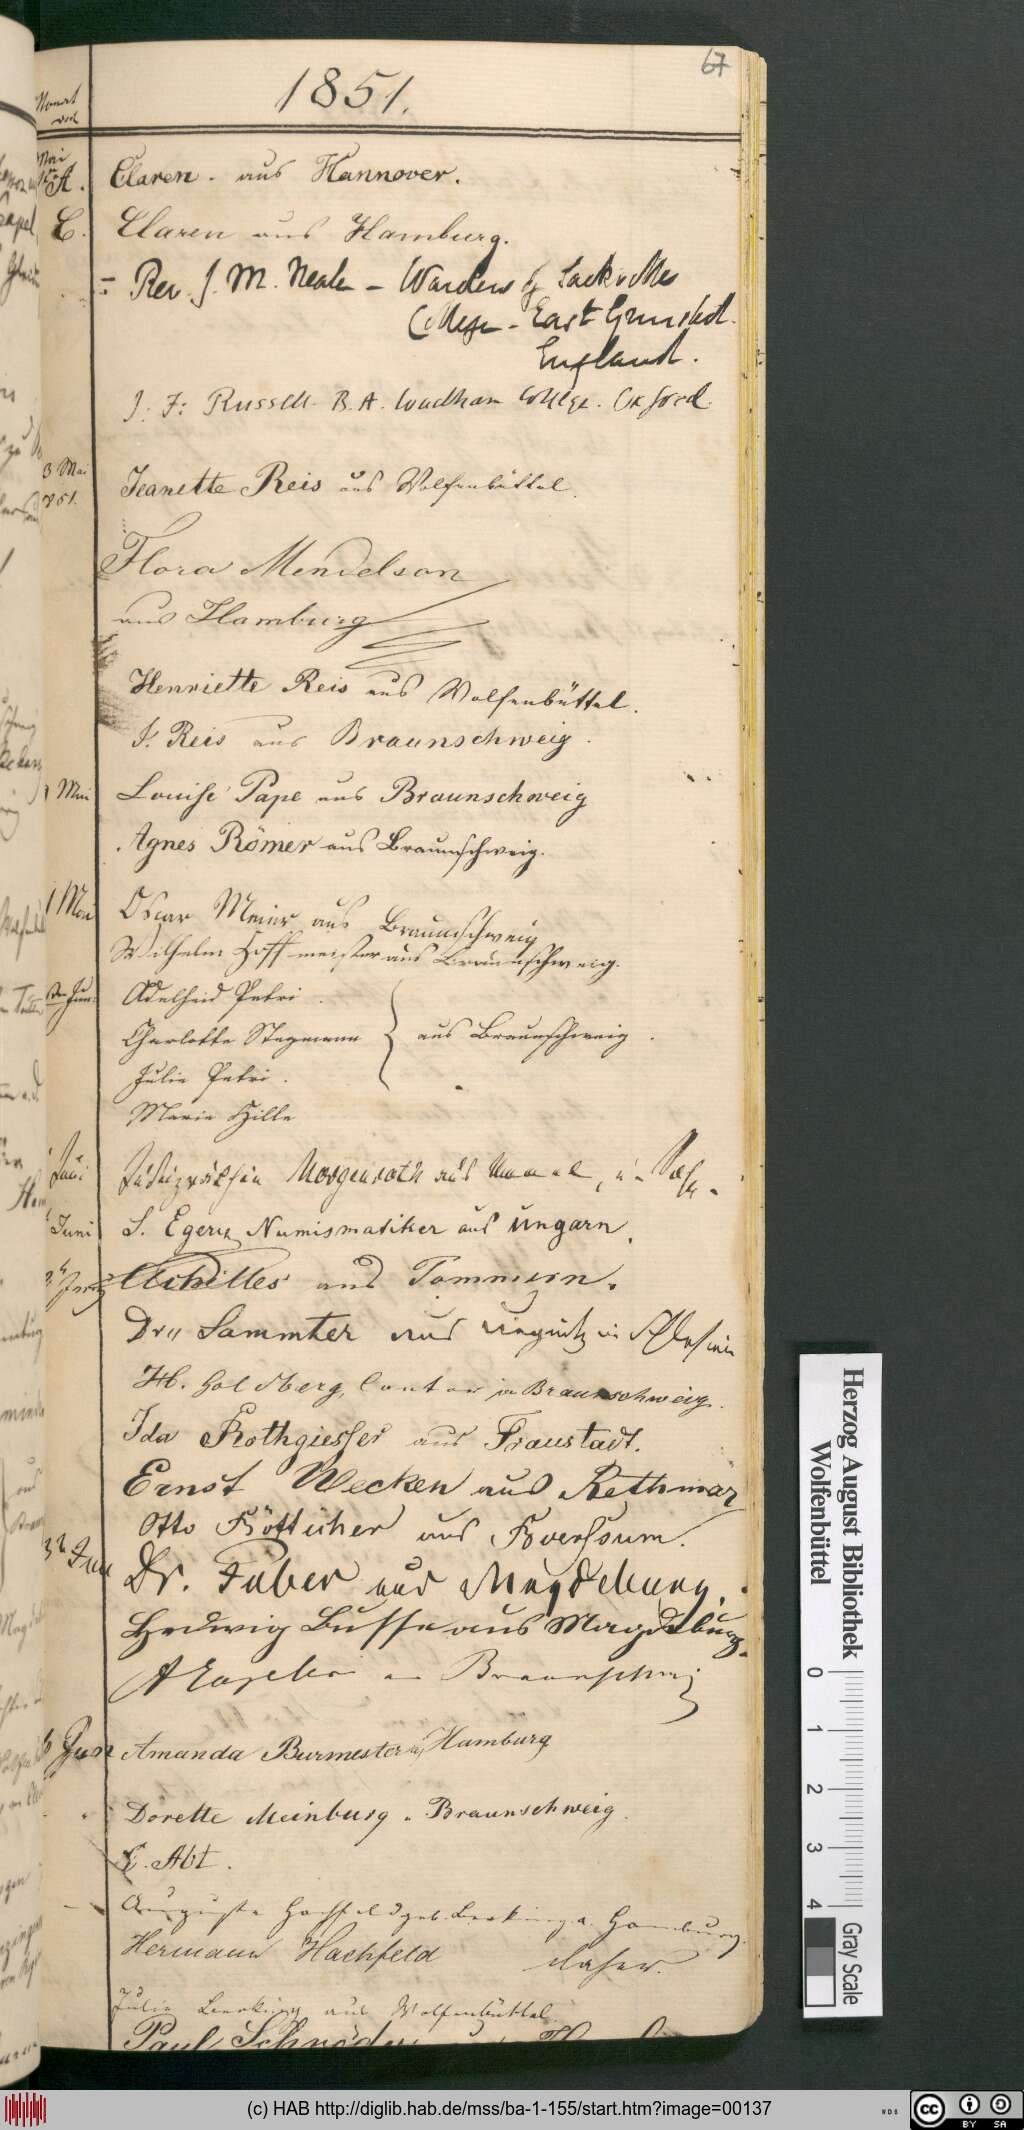 67
1851.
Mai
A. Claren. aus Hannover.
C. Claren aus Hamburg.
Rev. J. M. Neale – Warden of Sackville
College – East Grinsted.
England.
J. F. Russell. B.A. Wadham College. Oxford.
3 Mai
Jeanette Reis aus Wolfenbüttel.
Flora Mendelson
aus Hamburg
Henriette Reis aus Wolfenbüttel.
J. Reis aus Braunschweig.
Mai Louise Pape aus Braunschweig
Agnes Römer aus Braunschweig.
Mai Oscar Meier aus Braunschweig
Wilhelm Hoffmeister aus Braunschweig.
Adelheid Petri.
Charlotte Stegmann } aus Braunschweig.
Julie Petri.
Marie Hille
Juni Justizräthin Morgenroth aus
Juni S. Eger Numismatiker aus Ungarn.
Achilles aus Pommern.
Dr. Sammter aus Liegnitz in Schlesien
H. Goldberg, Cantor in Braunschweig.
Ida Rothgiesser aus Fraustadt.
Ernst Wecken aus Rethmar
Otto Bötticher aus
Dr. Faber aus Magdeburg.
Hedwig Busse aus Magdeburg.
Braunschweig
Jun Amanda Burmester a. Hamburg
Dorette Meinburg a. Braunschweig.
C. Abt.
Auguste Hachfeld geb. Leeking a. Hamburg.
Hermann Hachfeld daher.
Julie Leeking aus Wolfenbüttel.
Paul Schröder
Herzog August Bibliothek
Wolfenbüttel
0 1 2 3 4
Gray Scale
(c) HAB http://diglib.hab.de/mss/ba-1-155/start.htm?image=00137
WDB
cc BY SA